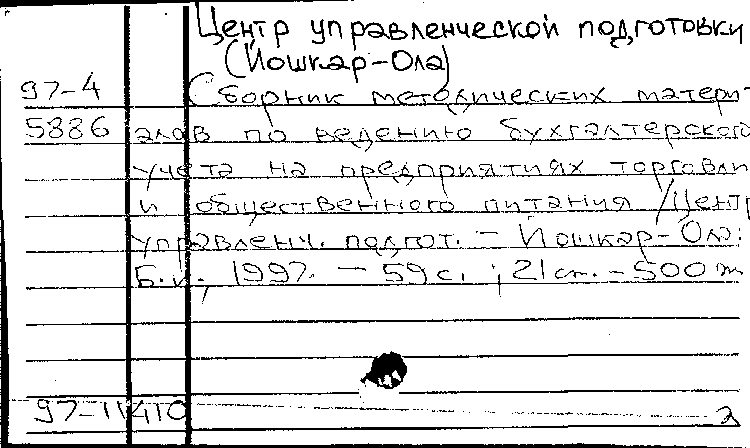 Центр управленческой подготовки
(Йошкар-Ола)
97-4 Сборник методических матери-
5886 алов по ведению бухгалтерского
учета на предприятиях торговли
и общественного питания /Центр
управленч. подгот. - Йошкар-Ола:
Б.и., 1997. - 59 с. ; 21 cm. - 500
97-11410